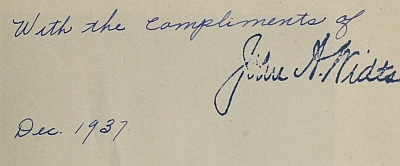 With the compliments of
John A. Widtsoe
Dec. 1937